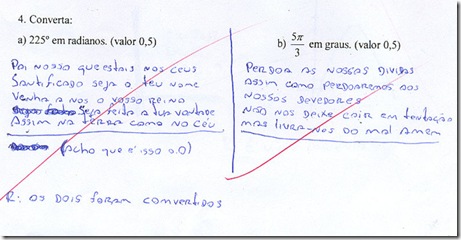 4. Converta:
a) 225º em radianos. (valor 0,5)
Pai nosso que estais nos ceus
Santificado seja o teu nome
Venha a nos o nosso reino
Seja feita a tua vontade
Assim na terra como no céu
(acho que é isso o.O)
R: os dois foram convertidos
b) 5π/3 em graus. (valor 0,5)
Perdoa as nossas dividas
assim como perdoaremos aos
nossos devedores
Não nos deixe cair em tentação
mas livra-nos do mal amem